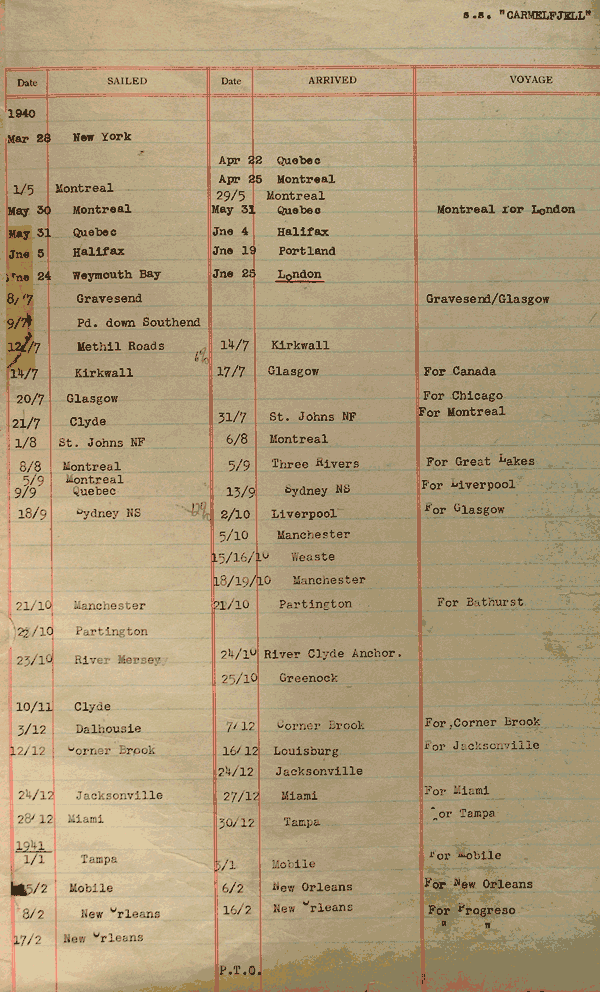 s.s. "CARMELFJELL"
Date SAILED Date ARRIVED VOYAGE
1940
Mar 28 New York
Apr 22 Quebec
Apr 25 Montreal
1/5 Montreal
29/5 Montreal
May 30 Montreal May 31 Quebec Montreal for London
May 31 Quebec Jne 4 Halifax
Jne 5 Halifax Jne 19 Portland
Jne 24 Weymouth Bay Jne 25 London
8/7 Gravesend Gravesend/Glasgow
9/7 Pd. down Southend
12/7 Methil Roads 14/7 Kirkwall
14/7 Kirkwall 17/7 Glasgow For Canada
20/7 Glasgow For Chicago
21/7 Clyde 31/7 St. Johns NF For Montreal
1/8 St. Johns NF 6/8 Montreal
8/8 Montreal 5/9 Three Rivers For Great Lakes
5/9 Montreal
9/9 Quebec 13/9 Sydney NS For Liverpool
18/9 Sydney NS 2/10 Liverpool For Glasgow
5/10 Manchester
15/16/10 Weaste
18/19/10 Manchester
21/10 Manchester 21/10 Partington For Bathurst
22/10 Partington
23/10 River Mersey 24/10 River Clyde Anchor.
25/10 Greenock
10/11 Clyde
3/12 Dalhousie 7/12 Corner Brook For Corner Brook
12/12 Corner Brook 16/12 Louisburg For Jacksonville
24/12 Jacksonville
24/12 Jacksonville 27/12 Miami For Miami
28/12 Miami 30/12 Tampa For Tampa
1941
1/1 Tampa 3/1 Mobile For Mobile
5/2 Mobile 6/2 New Orleans For New Orleans
8/2 New Orleans 16/2 New Orleans For Progreso
17/2 New Orleans " "
P.T.O.